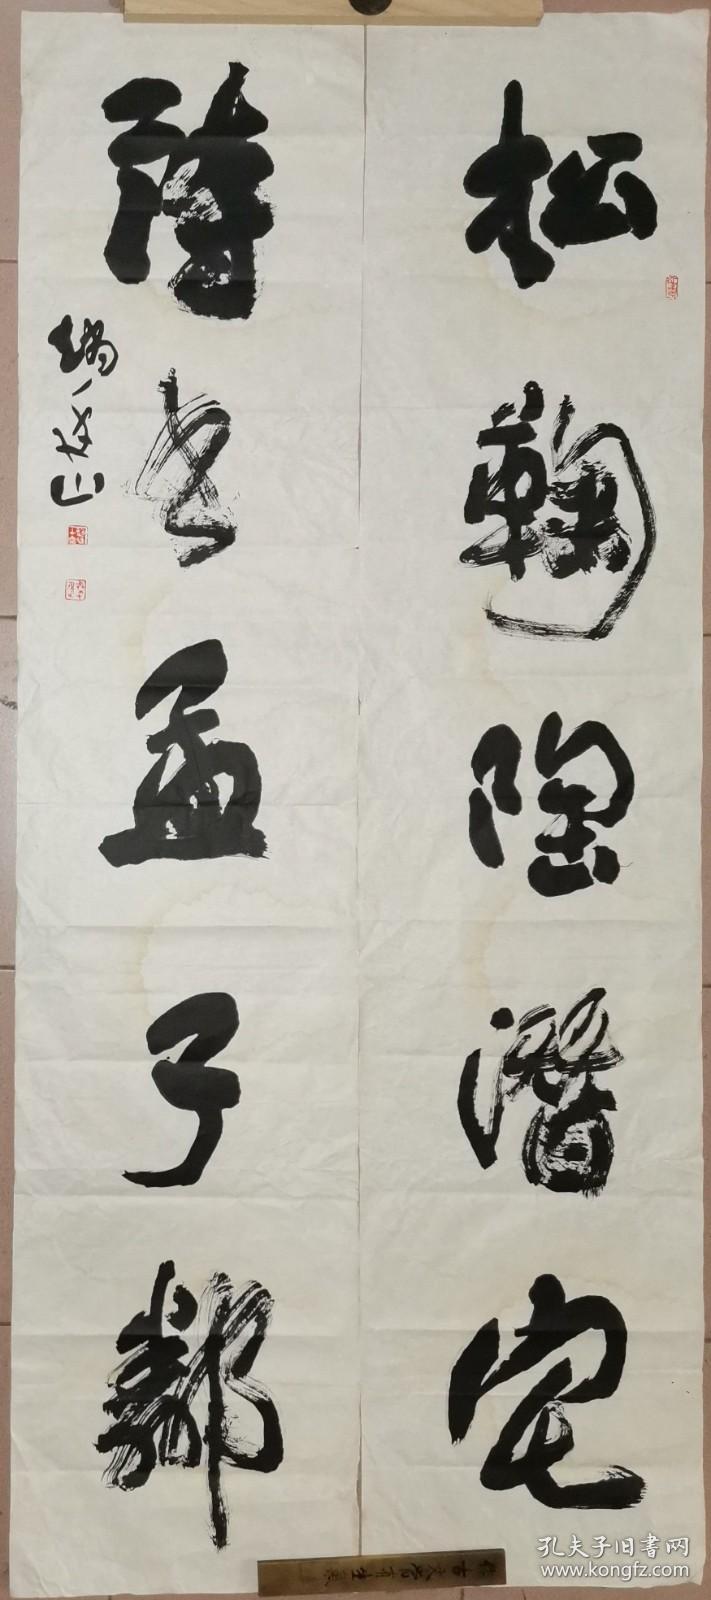 松鞠陶潜宅
诗书孟子邻
孔夫子旧书网
www.kongfz.com